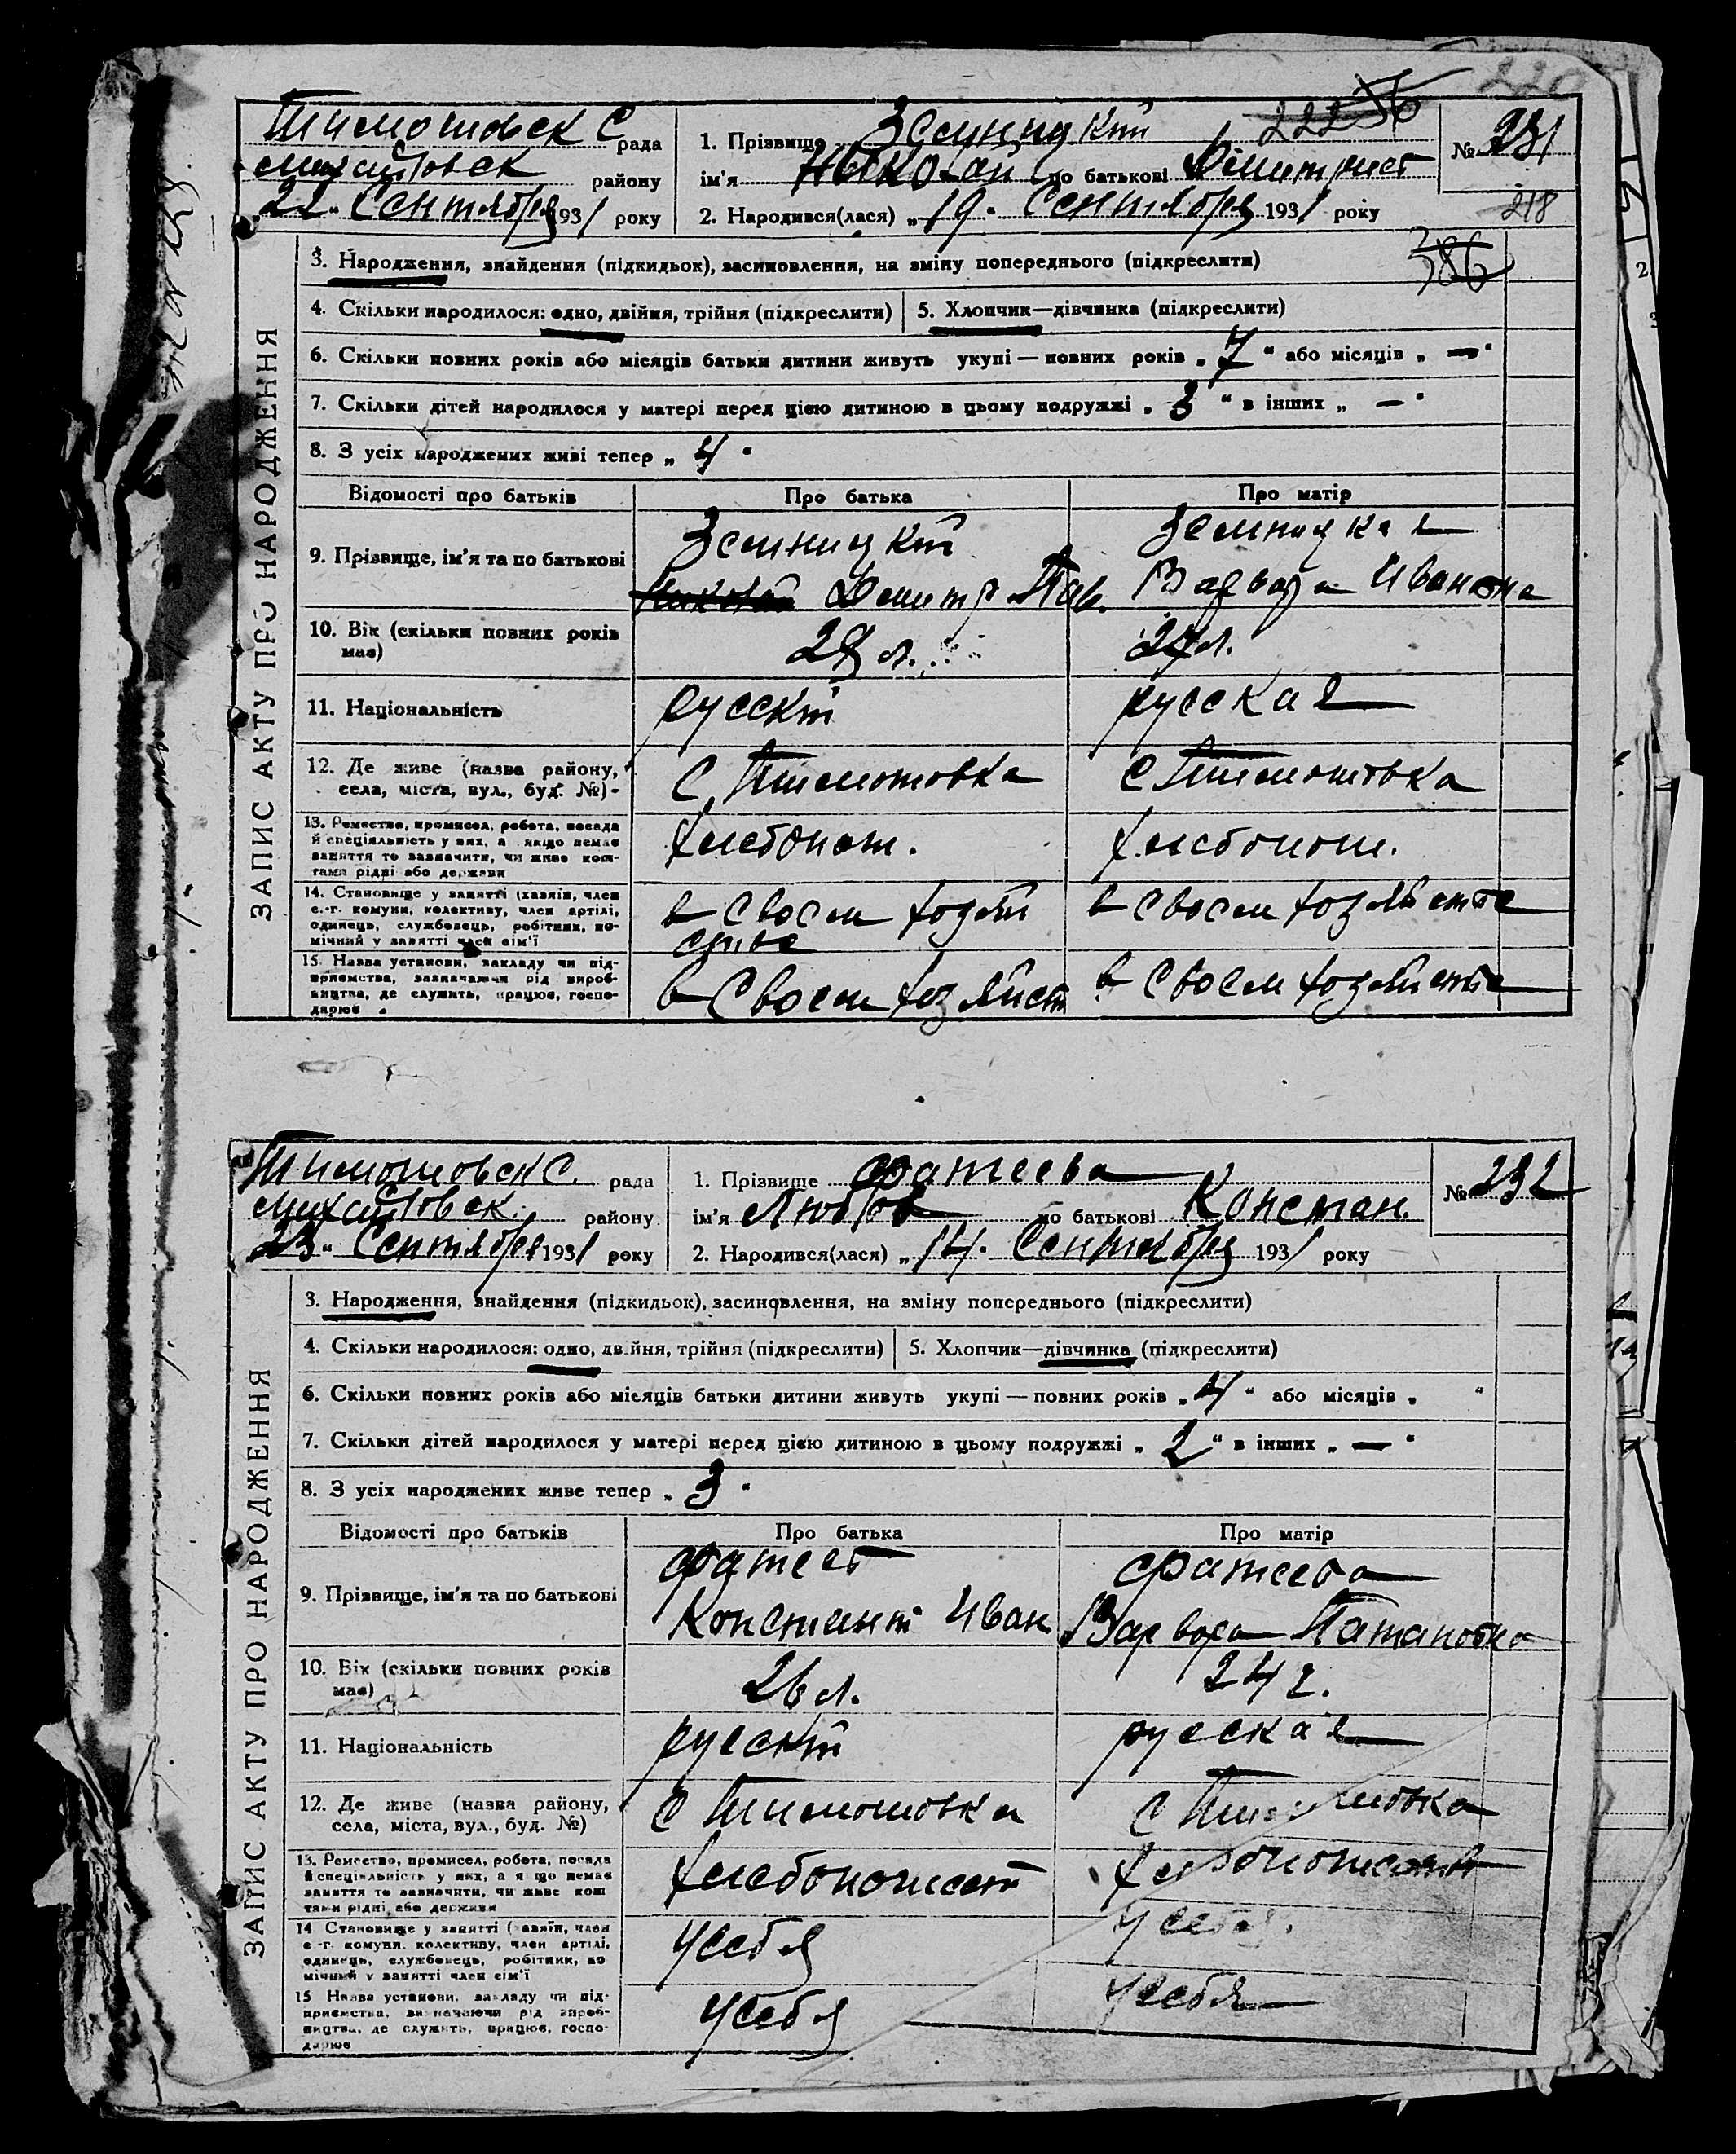 Тимошовск С рада
михайловск району
22 " Сентября 1931 року
1. Прізвище Земницкий
ім'я Николай по батькові Дмитриев
2. Народився(лася) „ 19 " Сентября 1931 року
№ 231
218
386
ЗАПИС АКТУ ПРО НАРОДЖЕННЯ
3. Народження, знайдення (підкидьок), засиновлення, на зміну попереднього (підкреслити)
4. Скільки народилося: одно, двійня, трійня (підкреслити) 5. Хлопчик—дівчинка (підкреслити)
6. Скільки повних років або місяців батьки дитини живуть укупі — повних років „ 7 " або місяців „ — "
7. Скільки дітей народилося у матері перед цією дитиною в цьому подружжі „ 3 " в інших „ — "
8. З усіх народжених живі тепер „ 4 "
Відомості про батьків Про батька Про матір
9. Прізвище, ім'я та по батькові Земницкий Земницкая
Дмитр Пав. Варвара Ивановна
10. Вік (скільки повних років має) 28 л. 27 л.
11. Національність русский русская
12. Де живе (назва району, села, міста, вул., буд. №) С. Тимошовка С Тимошовка
13. Ремество, промисел, робота, посада
й спеціяльність у них, а якщо немає
заняття то зазначити, чи живе кош-
тами рідні або держави
хлебопаш. хлебопаш.
14. Становище у занятті (хазяїн, член
с.-г. комуни, колективу, член артілі,
одинець, службовець, робітник, по-
мічний у занятті член сім'ї
в своем хозяй в своем хозяйстве
стве
15. Назва установи, закладу чи під-
приємства, зазначаючи рід вироб-
ництва, де служить, працює, госпо-
дарює
в своем хозяйст в своем хозяйстве
Тимошовск С. рада
михайловск. району
23 " Сентября 1931 року
1. Прізвище Фатеева
ім'я Любов по батькові Констан.
2. Народився(лася) „ 14 " Сентября 1931 року
№ 232
ЗАПИС АКТУ ПРО НАРОДЖЕННЯ
3. Народження, знайдення (підкидьок), засиновлення, на зміну попереднього (підкреслити)
4. Скільки народилося: одно, двійня, трійня (підкреслити) 5. Хлопчик—дівчинка (підкреслити)
6. Скільки повних років або місяців батьки дитини живуть укупі — повних років „ 4 " або місяців „ "
7. Скільки дітей народилося у матері перед цією дитиною в цьому подружжі „ 2 " в інших „ — "
8. З усіх народжених живе тепер „ 3 "
Відомості про батьків Про батька Про матір
9. Прізвище, ім'я та по батькові Фатеев Фатеева
Константи Иван Варвара Патаповна
10. Вік (скільки повних років має) 26 л. 24 г.
11. Національність русский русская
12. Де живе (назва району, села, міста, вул., буд. №) С Тимошовка С Тимошовка
13. Ремество, промисел, робота, посада
й спеціяльність у них, а якщо немає
заняття то зазначити, чи живе кош
тами рідні або держави
хлебопашест хлебопашест
14. Становище у занятті (хазяїн, член
с.-г. комуни, колективу, член артілі,
одинець, службовець, робітник, по
мічний у занятті член сім'ї
У себя У себя.
15. Назва установи, закладу чи під-
приємства, зазначаючи рід вироб-
ництва, де служить, працює, госпо-
дарює
У себя У себя